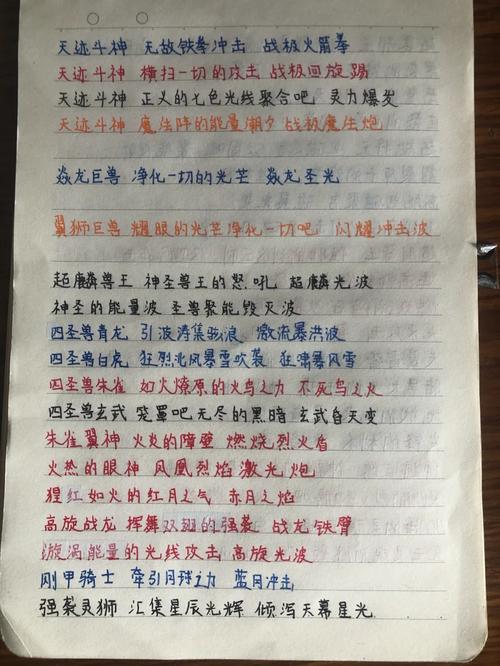 天迹斗神 无敌铁拳冲击 战极火箭拳
天迹斗神 横扫一切的攻击 战极回旋踢
天迹斗神 正义的七色光线聚合吧 灵力爆发
天迹斗神 魔法阵的能量潮夕 战极魔法炮
焱龙巨兽 净化一切的光芒 焱龙圣光
翼狮巨兽 耀眼的光芒净化一切吧 闪耀冲击波
超麟兽王 神圣兽王的怒吼 超麟光波
神圣的能量波 圣兽聚能毁灭波
四圣兽青龙 引波涛集骇浪 激流暴洪波
四圣兽白虎 狂烈北风暴雪吹袭 狂啸暴风雪
四圣兽朱雀 如火燎原的火鸟之力 不死鸟之火
四圣兽玄武 笼罩吧无尽的黑暗 玄武自天变
朱雀翼神 火炎的障壁 燃烧烈火盾
火热的眼神 风凰烈焰激光炮
猩红如火的红月之气 赤月之焰
高旋战龙 挥舞双翅的强袭 战龙铁臂
漩涡能量的光线攻击 高旋光波
刚甲骑士 牵引月球之力 蓝月冲击
强裂灵狮 汇集星辰光辉 倾泻天幕星光